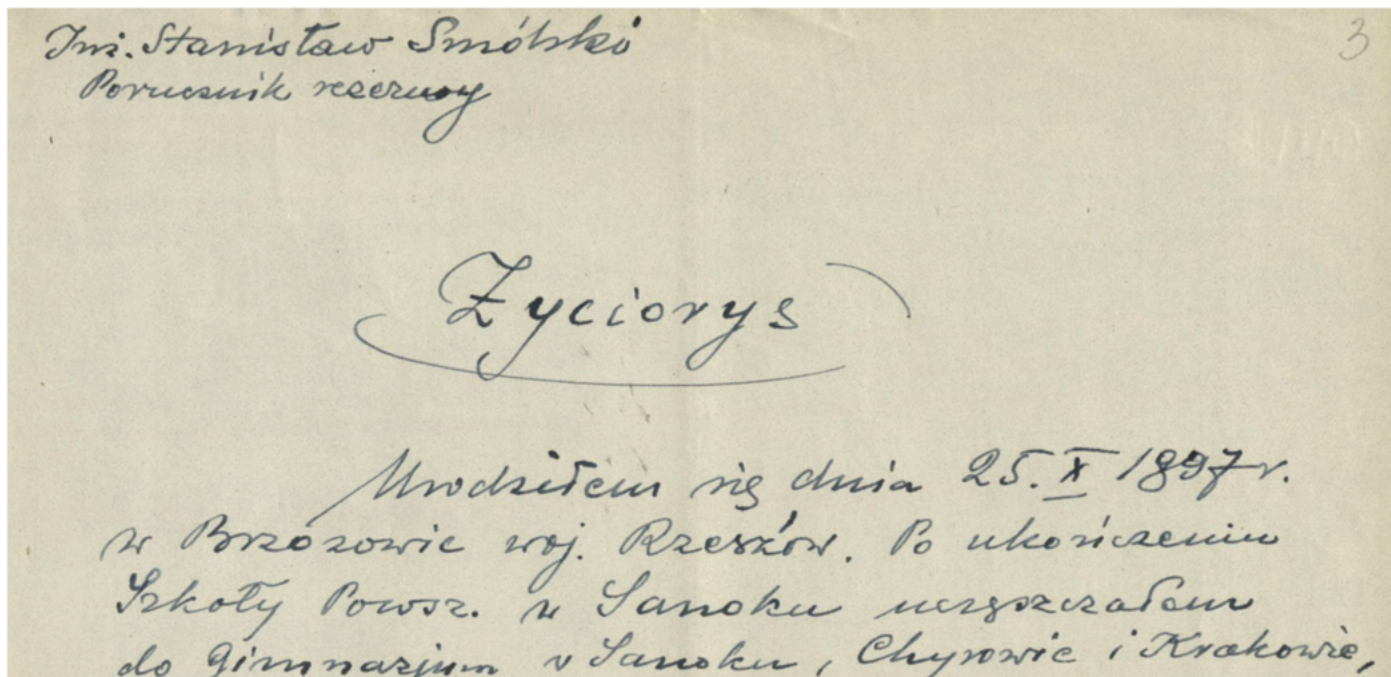 Inż. Stanisław Smólski
3
Porucznik rezerwy
Życiorys
Urodziłem się dnia 25. X 1897 r.
w Brzozowie woj. Rzeszów. Po ukończeniu
Szkoły Powsz. w Sanoku uczęszczałem
do Gimnazjum w Sanoku, Chyrowie i Krakowie,